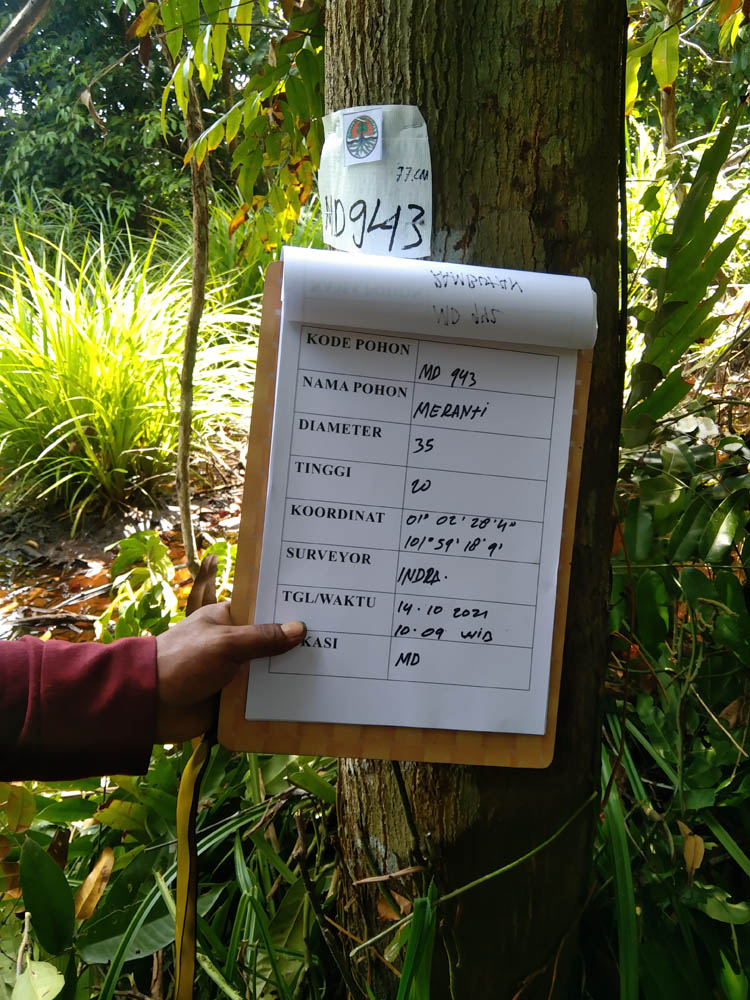 77.cm
MD943
KODE POHON MD 943
NAMA POHON MERANTI
DIAMETER 35
TINGGI 20
KOORDINAT 01° 02' 28'4"
101° 59' 18'9'
SURVEYOR INDRA.
TGL/WAKTU 14.10 2021
10.09 WIB
KASI MD